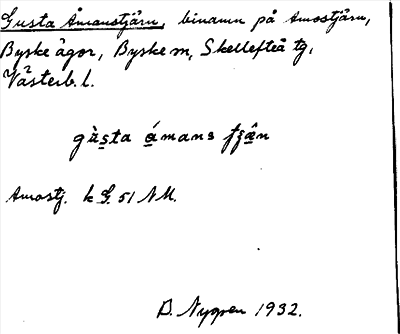 Gusta Åmanstjärn, binamn på Amostjärn,
Byske ägor, Byske sn, Skellefteå tg,
Västerb. l.
gùsta ámans tjæ̂n
Amostj. k G. 51 NM.
D. Nygren 1932.